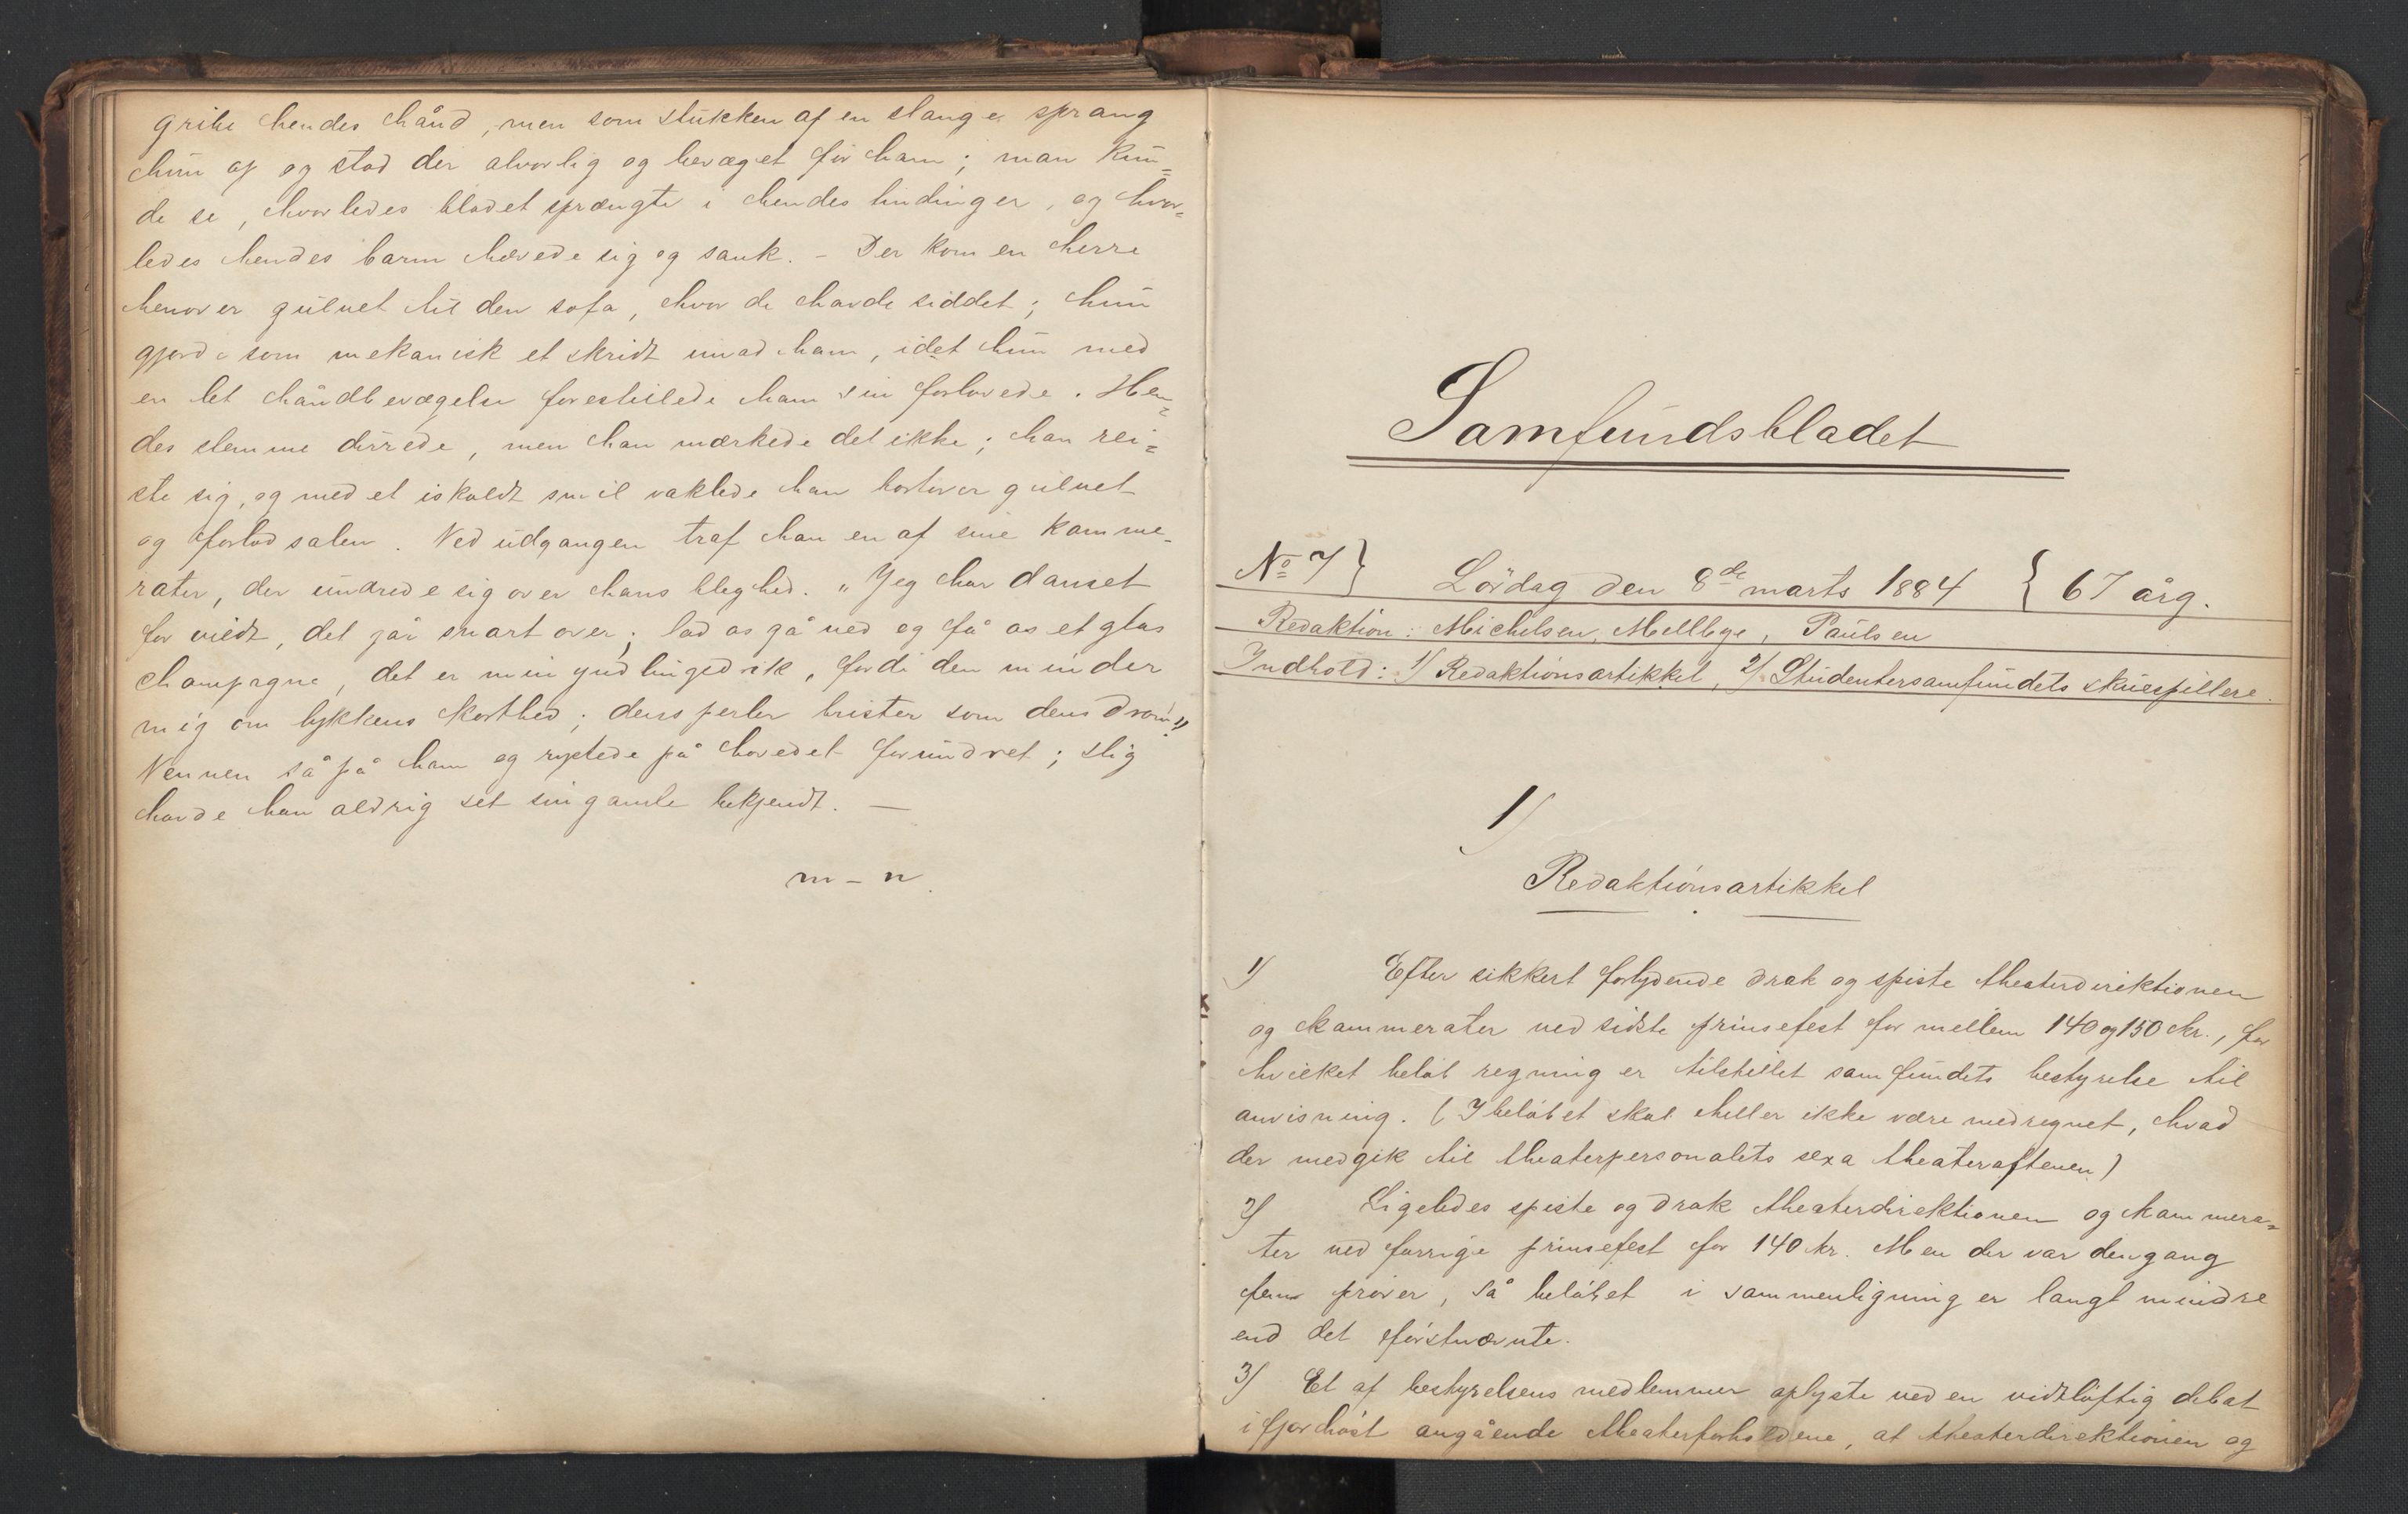 gribe hendes hånd, men som stukken af en slange sprang
hun op og stod der alvorlig og bevæget for ham; man kun=
de se, hvorledes blodet sprængte i hendes tindinger, og hvor=
ledes hendes barm hævede sig og sank. – Der kom en herre
henover gulvet til den sofa, hvor de havde siddet; hun
gjorde som mekanisk et skridt imod ham, idet hun med
en let håndbevægelse forestillede ham sin forlovede. Hen=
des stemme dirrede, men han mærkede det ikke; han rei=
ste sig, og med et iskoldt smil vaklede han bortover gulvet
og forlod salen. Ved udgangen traf han en af sine kamme-
rater, der undrede sig over hans bleghed. "Jeg har danset
for vildt, det går snart over; lad os gå ned og få os et glas
champagne, det er min yndlingsdrik, fordi den minder
mig om lykkens korthed; dens perler brister som dens dröm."
Vennen så på ham og rystede på hovedet forundret; slig
havde han aldrig set sin gamle bekjendt. —
m – n.
Samfundsbladet
No 7} Lördag den 8de marts 1884 { 67 årg.
Redaktion: Michelsen, Mellbye, Paulsen
Indhold: 1/ Redaktionsartikkel, 2/ Studentersamfundets skuespillere.
1/
Redaktionsartikkel
1/ Efter sikkert forlydende drak og spiste theaterdirektionen
og kammerater ved sidste prinsefest for mellem 140 og 150 kr., for
hvilket beløb regning er tilstillet samfundets bestyrelse til
anvisning. (I beløbet skal heller ikke være medregnet, hvad
der medgik til theaterpersonalets sexa theateraftenen.)
2/ Ligeledes spiste og drak theaterdirektionen og kammera=
ter ved forrige prinsefest for 140 kr. Men der var dengang
fem prøver, så beløbet i sammenligning er langt mindre
end det förstnævnte.
3/ Et af bestyrelsens medlemmer oplyste ved en vidtløftig debat
i fjor høst angående theaterforholdene, at theaterdirektionen og